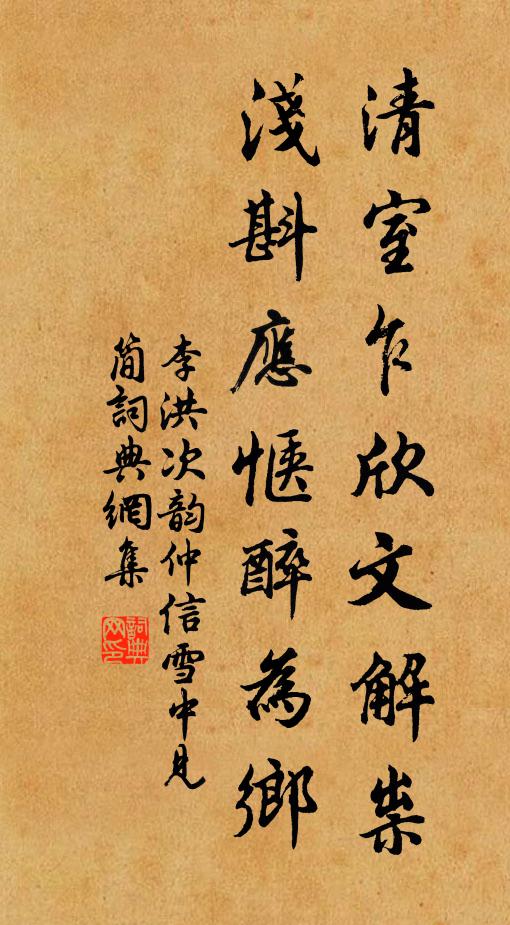 清室乍欣文解祟
淺斟應愜醉為鄉
李洪次韵仲信雪中見
簡詞典網集
詞典网印